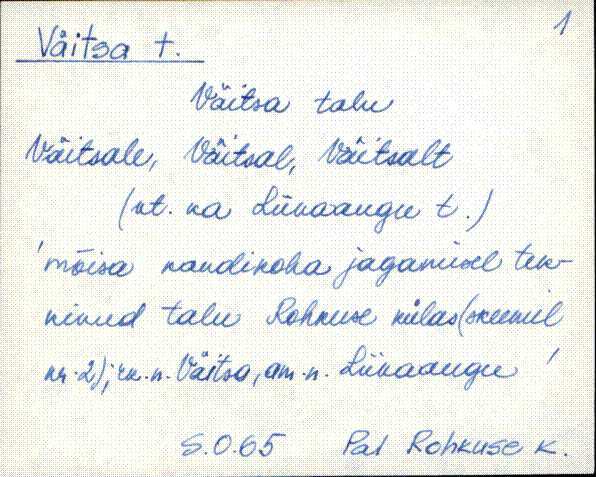 1
Väitsa t.
Väitsa talu
Väitsale, Väitsal, Väitsalt
(vt. ka Liivaaugu t.)
'mõisa kandikoha jagamisel tek-
kinud talu Rohkuse külas (skeemil
nr. 2); rk. n. Väitsa, am. n. Liivaaugu'
S.O.65 Pal Rohkuse k.